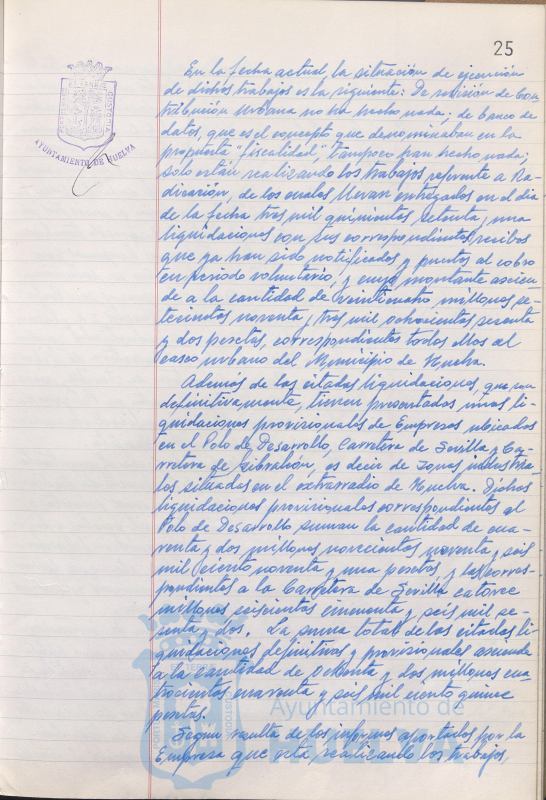 25
AYUNTAMIENTO DE HUELVA
En la fecha actual, la situación de ejecución
de dichos trabajos es la siguiente: De revisión de Con-
tribución Urbana no ha hecho nada; de banco de
datos, que es el concepto que denominaban en la
propuesta "fiscalidad", tampoco han hecho nada;
solo están realizando los trabajos referente a Ra-
dicación, de los cuales llevan entregados en el día
de la fecha tres mil quinientas setenta y una
liquidaciones con sus correspondientes recibos
que ya han sido notificados y puestos al cobro
en periodo voluntario, y cuyo montante ascien-
de a la cantidad de veinticuatro millones se-
tecientas noventa y tres mil ochocientas sesenta
y dos pesetas, correspondientes todos ellos al
casco urbano del Municipio de Huelva.
Además de las citadas liquidaciones, que son
definitivamente, tienen presentados unas li-
quidaciones provisionales de Empresas ubicadas
en el Polo de Desarrollo, Carretera de Sevilla y Ca-
rretera de Gibraleón, es decir de zonas industria-
les situadas en el extrarradio de Huelva. Dichas
liquidaciones provisionales correspondientes al
Polo de Desarrollo suman la cantidad de cua-
renta y dos millones novecientas noventa y seis
mil ciento noventa y una pesetas y las corres-
pondientes a la Carretera de Sevilla catorce
millones seiscientas cincuenta y seis mil se-
senta y dos. La suma total de las citadas li-
quidaciones definitivas y provisionales asciende
a la cantidad de Ochenta y dos millones cua-
trocientas cuarenta y seis mil ciento quince
pesetas.
Según resulta de los informes aportados por la
Empresa que está realizando los trabajos,
Ayuntamiento de